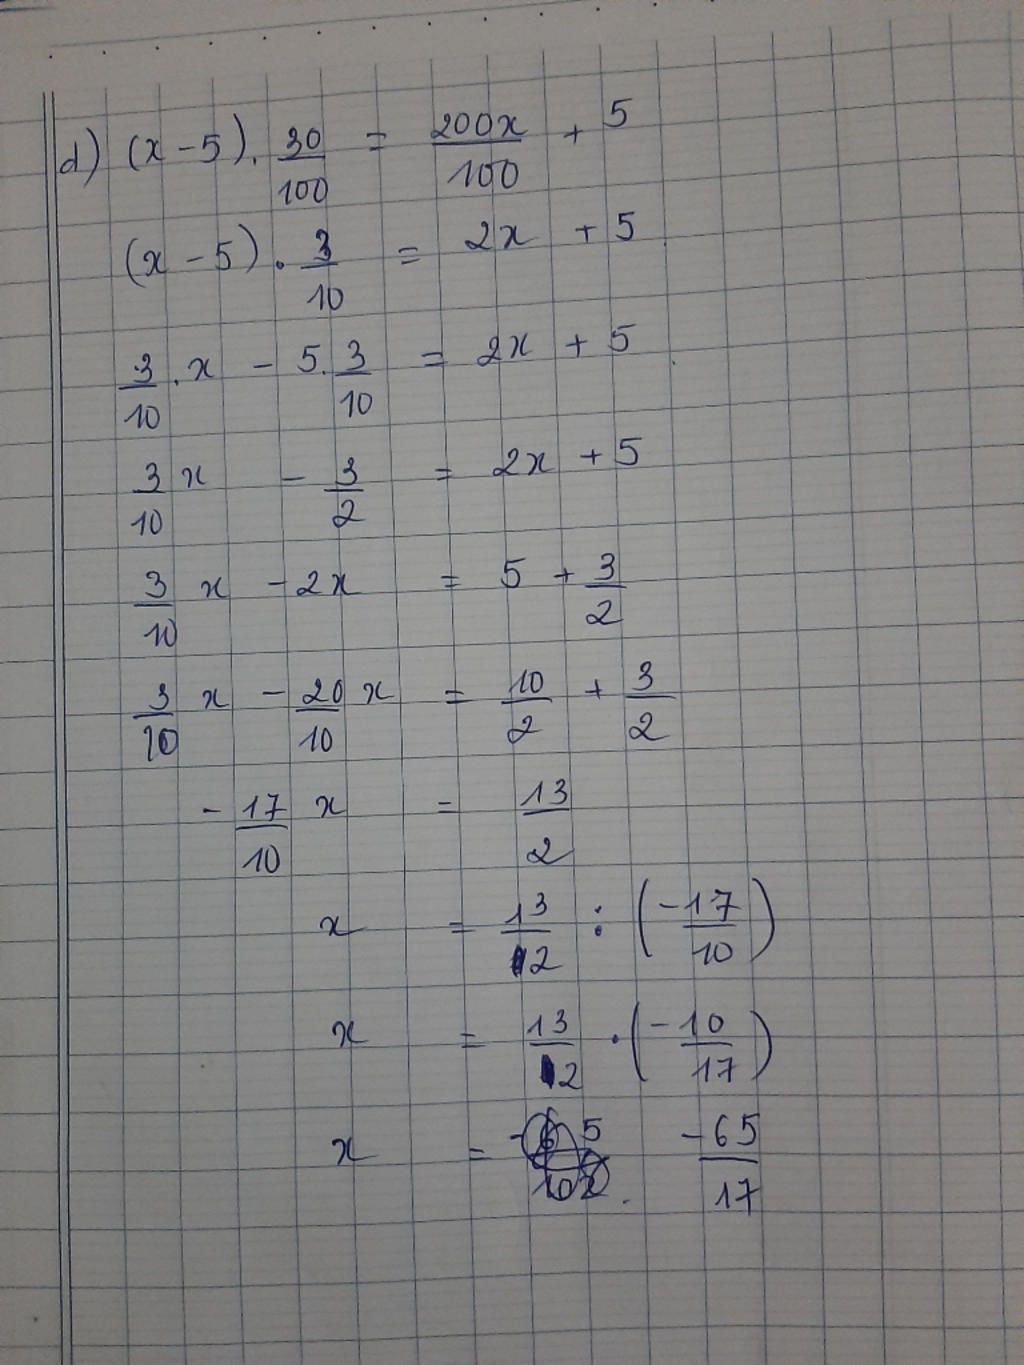 d) (x - 5) . 30/100 = 200x/100 + 5
(x - 5) . 3/10 = 2x + 5
3/10 . x - 5 . 3/10 = 2x + 5
3/10 x - 3/2 = 2x + 5
3/10 x - 2x = 5 + 3/2
3/10 x - 20/10 x = 10/2 + 3/2
- 17/10 x = 13/2
x = 13/2 : (-17/10)
x = 13/2 . (-10/17)
x = -65/17